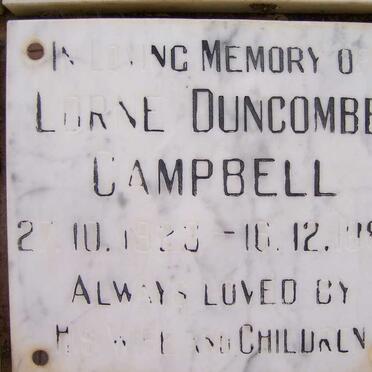 IN LOVING MEMORY OF
LORNE DUNCOMBE
CAMPBELL
ALWAYS LOVED BY
HIS WIFE AND CHILDREN